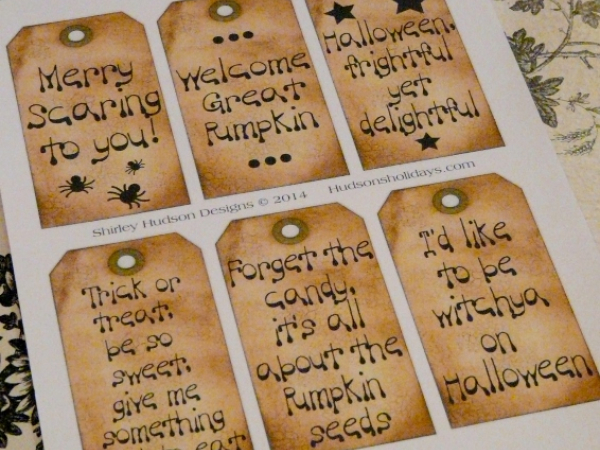 Merry
Scaring
to you!
Welcome
Great
Pumpkin
Halloween,
frightful
yet
delightful
Shirley Hudson Designs © 2014 Hudsonsholidays.com
Trick or
treat,
be so
sweet,
give me
something
eat
Forget the
candy,
it's all
about the
Pumpkin
seeds
I'd like
to be
witchya
on
Halloween